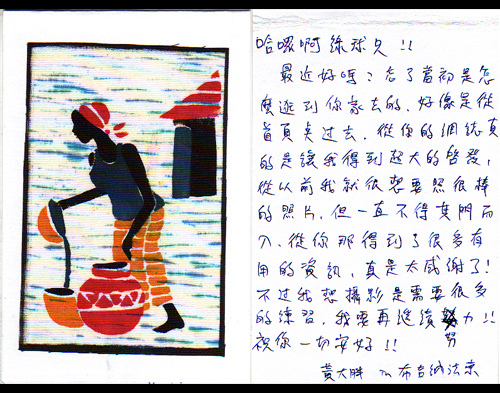 哈囉啊 !!
最近好嗎?忘了當初是怎
麼逛到你家去的,好像是從
首頁點過去,從你的網誌真
的是讓我得到超大的啓發,
從以前我就很想要照很棒
的照片,但一直不得其門而
入,從你那得到了很多有
用的資訊,真是太感謝了!
不過我想攝影是需要很多
的練習,我要再繼續努力!!
祝你一切安好!!
黃大胖 in 布吉納法索